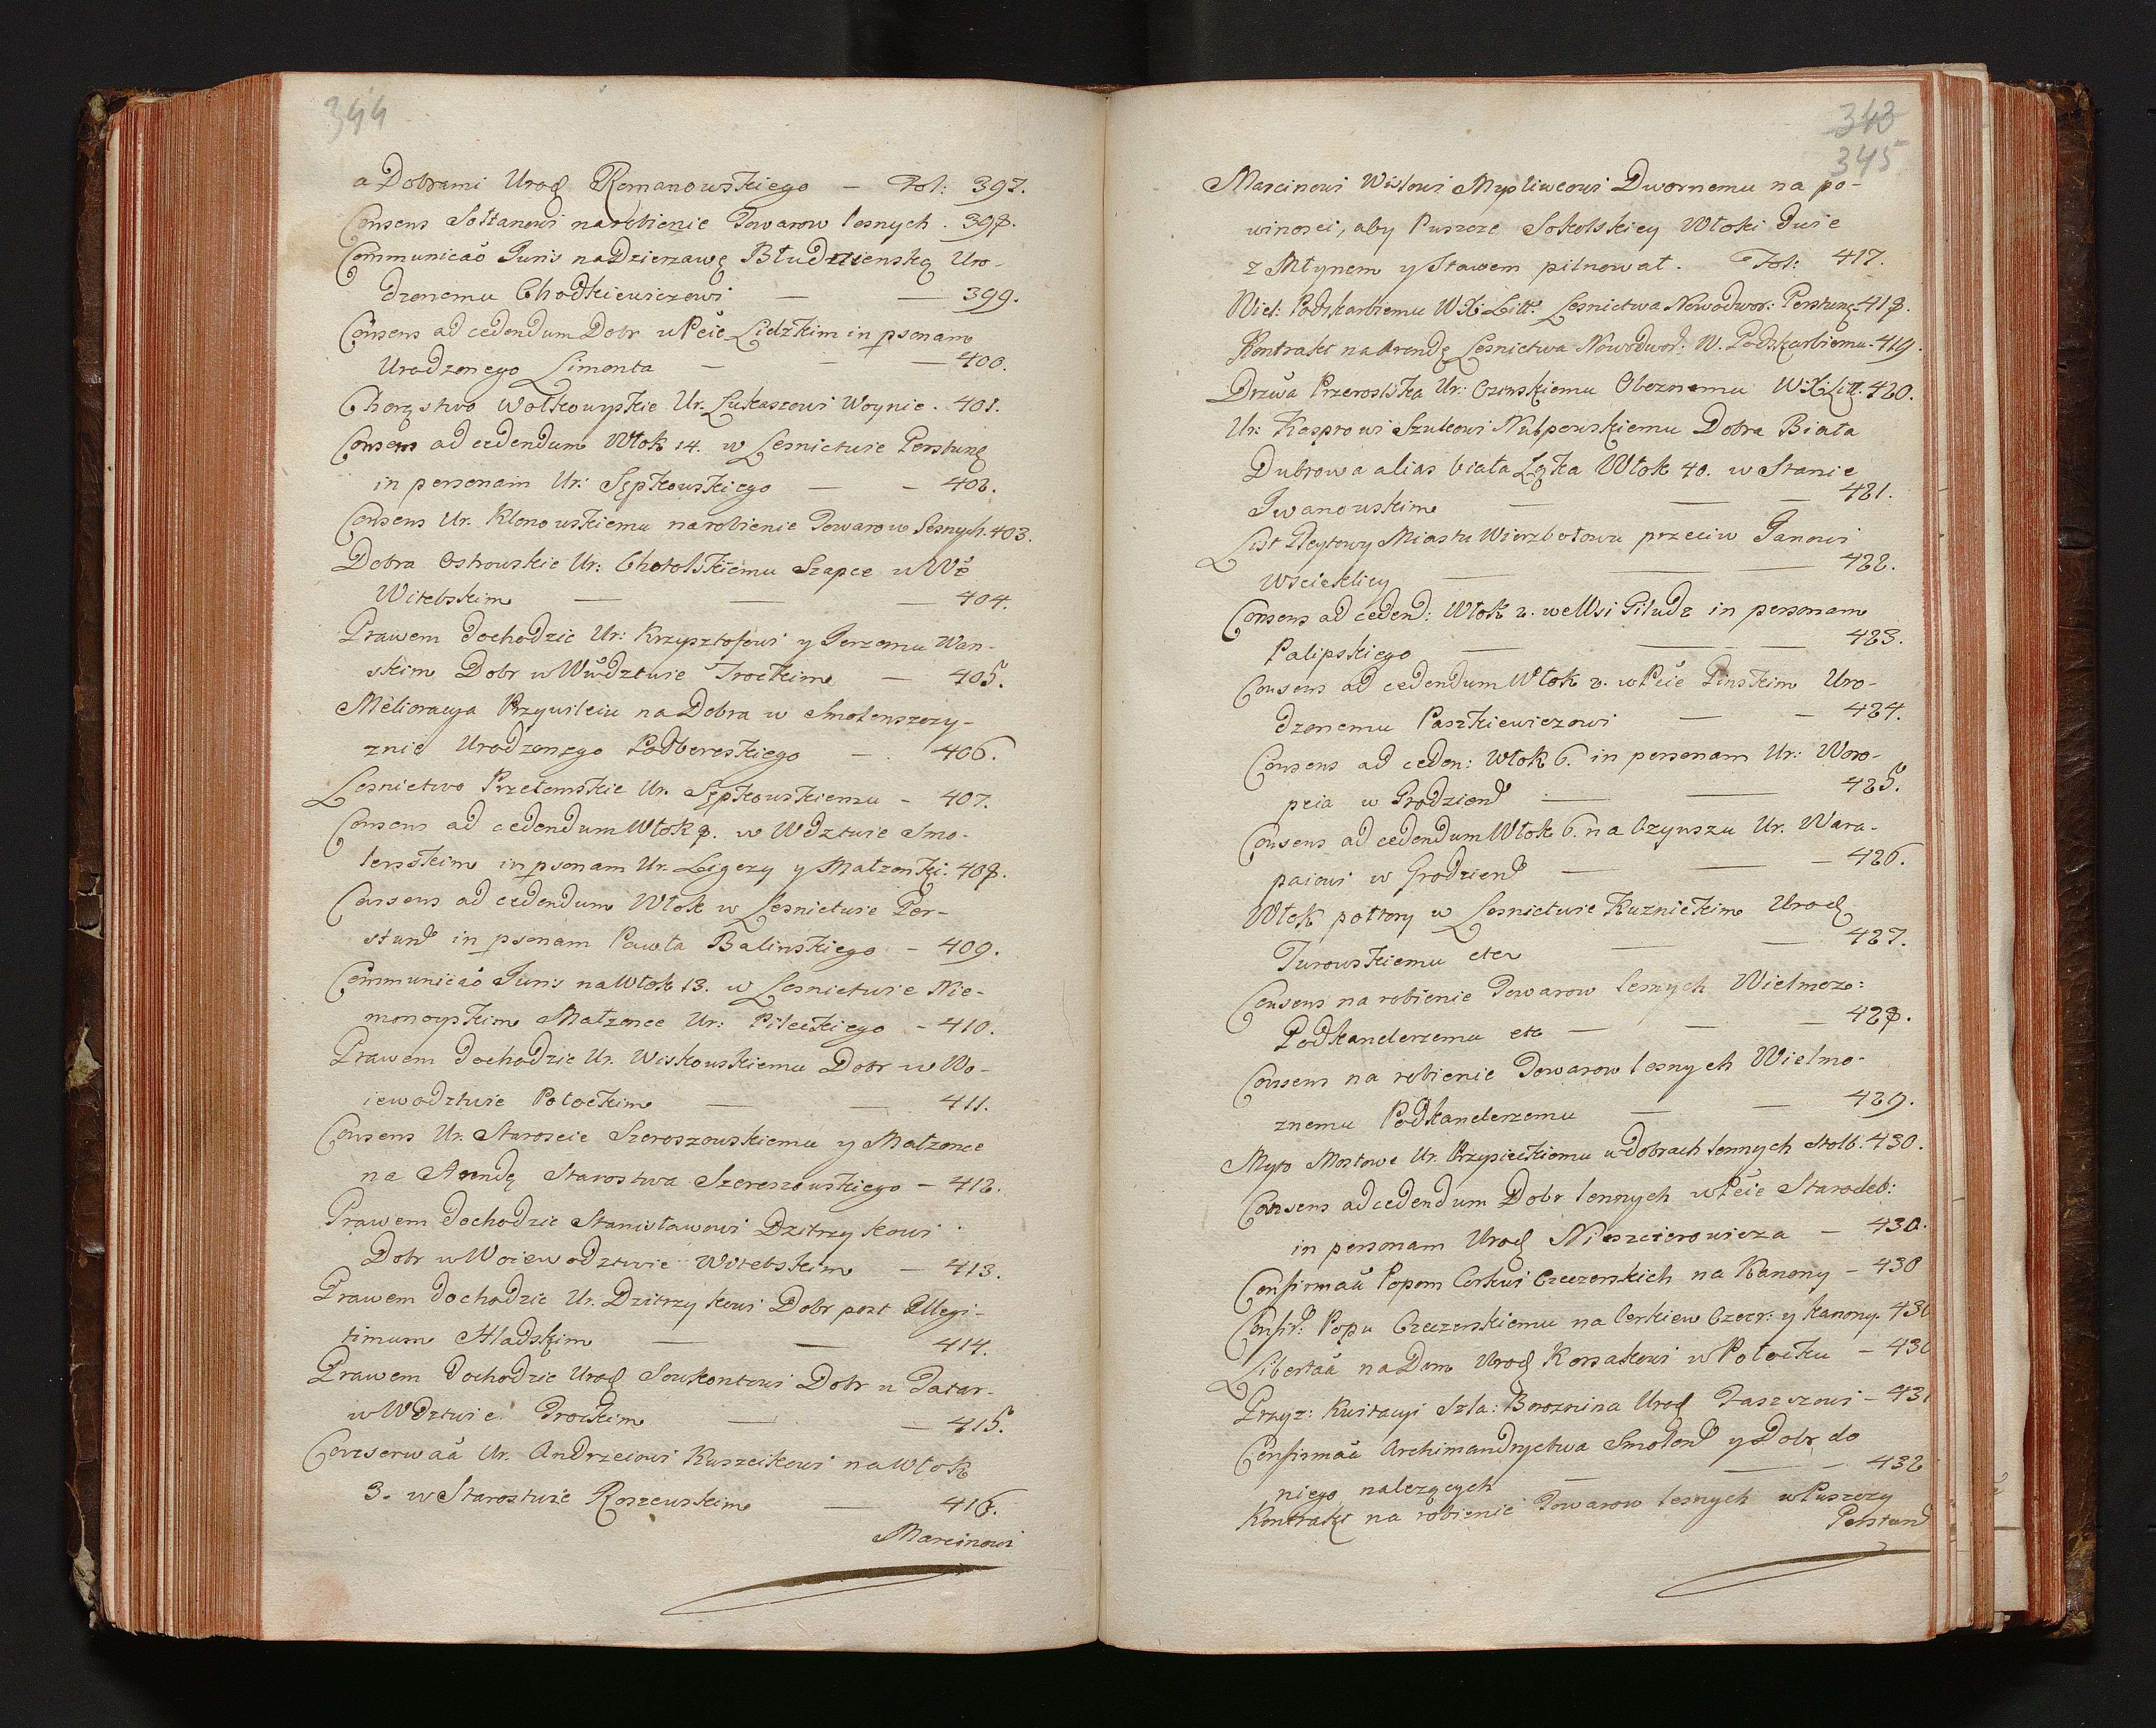 344
a Dobrami Urod Romanowskiego — Fol: 397.
Consens Sołtanowi na robienie Towarow lesnych . 398.
Communicao Juris na Dzierzawę Błudzienską Uro-
dzonemu Chodkiewiczowi — — 399.
Consens ad cedendum Dobr w Pcie Lidzkim in psonam
Urodzonego Limonta — — — 400.
Chorąstwo Wołkowyskie Ur. Łukaszowi Woynie . 401.
Consens ad cedendum Włok 14. w Lesnictwie Perstuną
in personam Ur: Sępkowskiego — — 402.
Consens Ur. Klonowskiemu na robienie Towarow lesnych. 403.
Dobra Ostrowskie Ur: Chotolskiemu Szapce w Wź
Witebskim — — — 404.
Prawem dochodzic Ur: Krzysztofowi y Jerzemu Wan-
skim Dobr w Wwdztwie Trockim — 405.
Melioracya Przywileiu na Dobra w Smolenszczy-
znie Urodzonego Podbereskiego — 406.
Lesnictwo Przełomskie Ur. Sępkowskiemu - 407.
Consens ad cedendum Włok 8. w Wdztwie Smo-
lenskim in psonam Ur. Ligezy y Małzonki. 408.
Consens ad cedendum Włok w Lesnictwie Per-
stund in psonam Pawła Balinskiego - 409.
Communicao Juris na Włok 13. w Lesnictwie Nie-
monoyskim Małzonce Ur: Pileckiego - 410.
Prawem dochodzic Ur. Wiskowskiemu Dobr w Wo-
iewodztwie Połockim — — 411.
Consens Ur. Staroscie Szeroszowskiemu y Małzonce
na Arendę Starostwa Szereszowskiego — 412.
Prawem dochodzic Stanisławowi Dzitrzykowi
Dobr w Woiewodztwie Witebskim — 413.
Prawem dochodzic Ur. Dzitrzykowi Dobr post Illegi-
timum Hladskim — — 414.
Prawem dochodzic Urod Soukontowi Dobr u Tatar-
w Wdztwie Trockim — — 415.
Conserwaa Ur. Andrzeiowi Ruszcikowi na Włok
3. w Starostwie Roszewskim — 416.
Marcinowi
343
345
Marcinowi Wisłowi Mysliwcowi Dwornemu na po-
winosci, aby Puszcze Sokolskiey Włoki Dwie
z Młynem y Stawem pilnował . Fol: 417.
Wiel: Podskarbiemu W.X: Litt. Lesnictwa Nowodwor: Perstung. 418.
Kontrakt na Arendę Lesnictwa Nowodwor. W. Podskarbiemu. 419.
Drzwa Przerosliska Ur: Ozinskiemu Oboznemu W:X:Litt. 420.
Ur: Kasprowi Szulcowi Nutpowskiemu Dobra Biała
Dubrowa alias biała Łąka Włok 40. w Stanie
Jwanowskim — — — 421.
List Gleytowy Miastu Wierzbołowu przeciw Janowi
Wscieklicy — — — 422.
Consens ad cedend: Włok 2. we Wsi Giłudz in personam
Palipskiego — — — 423.
Consens ad cedendum Włok 2. w Pcie Pinskim Uro-
dzonemu Paszkiewiczowi — — 424.
Consens ad ceden: Włok 6. in personam Ur: Woro-
pria w Grodziend — — 425.
Consens ad cedendum Włok 6. na Czynszu Ur. Wara-
paiowi w Grodziend — — — 426.
Włok połtory w Lesnictwie Kuznickim Urod
Turowskiemu etc — — 427.
Consens na robienie Towarow lesnych Wielmoz:
Podkanclerzemu etc — — — 428.
Consens na robienie Towarow lesnych Wielmo-
znemu Podkanclerzemu — — 429.
Myto Mostowe Ur. Przypieckiemu w Dobrach lennych Stolb. 430.
Consens ad cedendum Dobr lennych w Pcie Starodeb:
in personam Urod Nieszcierowicza — 430.
Confirmaa Popom Cerkwi Czeczerskich na Kanony — 430
Confir: Popu Czeczerskiemu na Cerkiew Czecz: y kanony. 430
Libertaa na Dom Urod Korsakowi w Połocku — 430
Przyz: Kwitacyi Szla: Boroznina Urod Taszszowi — 431
Confirmaa Archimandryctwa Smolend y Dobr do
niego nalezących — — — 432
Kontrakt na robienie Towarow lesnych w Puszczy
Perstund